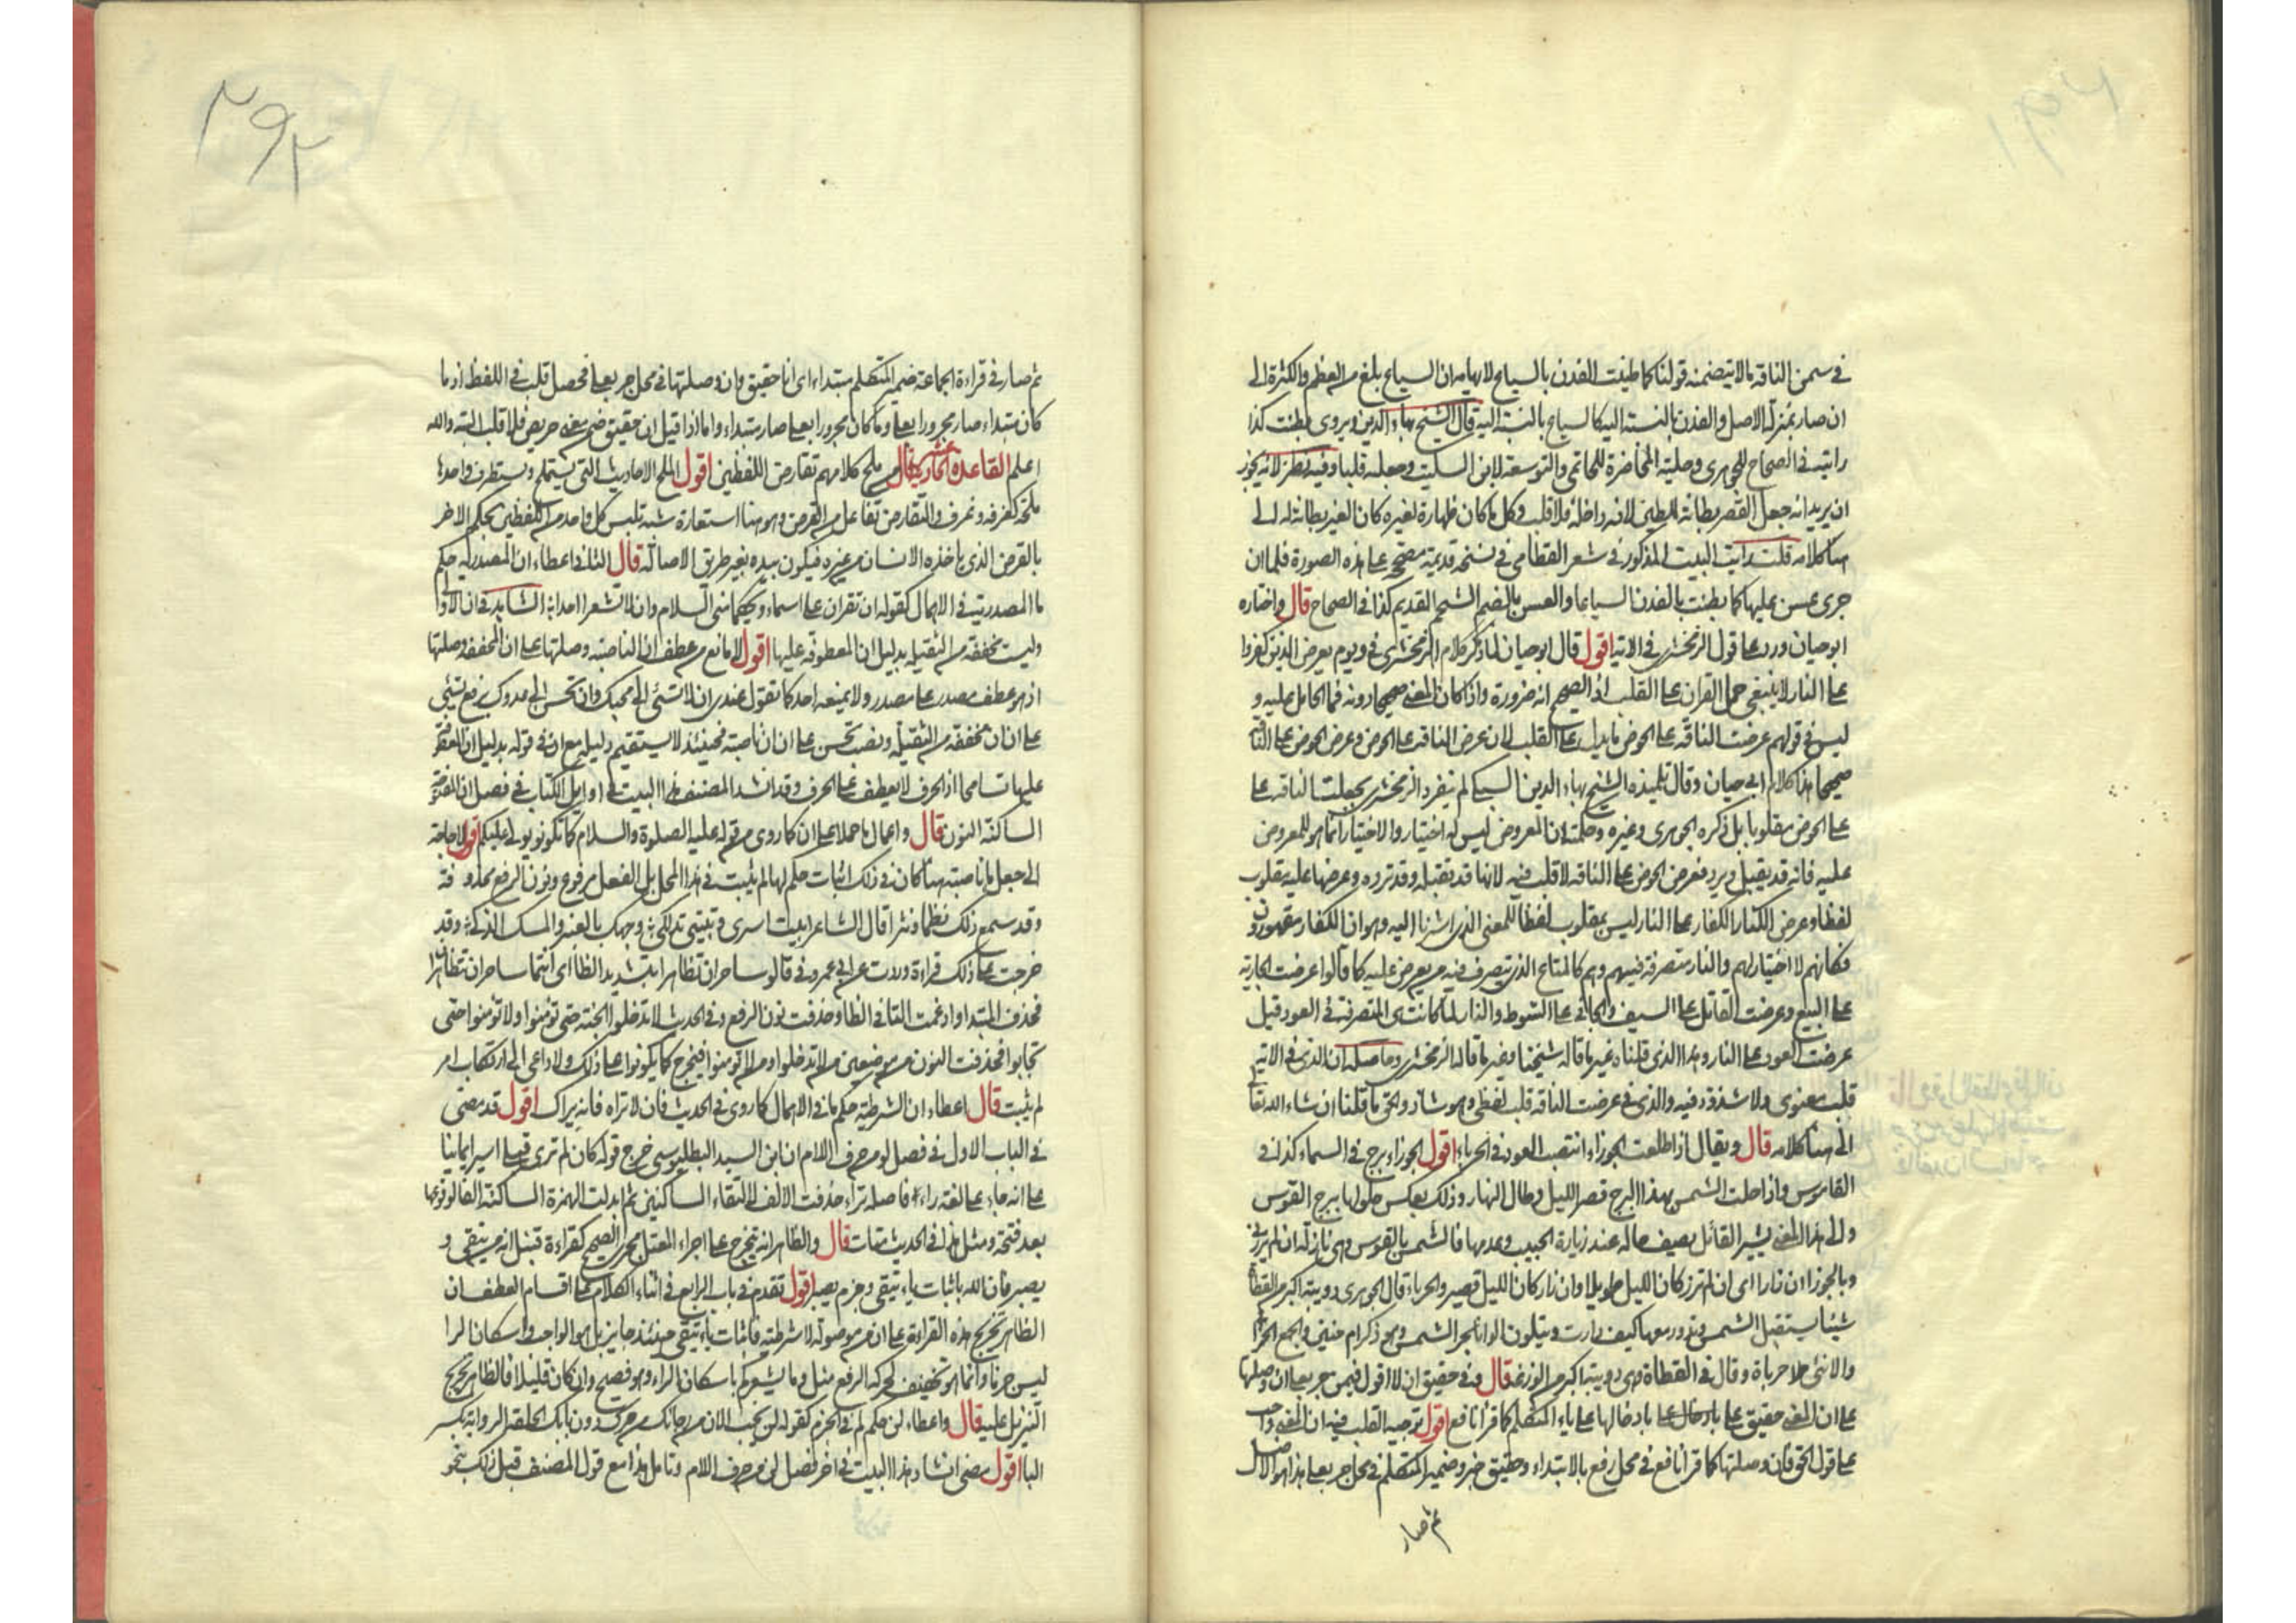 في سمن الناقة ما لا يتضمنه قولنا كما طينت الفدن بالسياع لايهامه ان السياع بلغ من العظم والكثرة الى
ان صار بمنزلة الاصل والفدن بالنسبة اليه كالسياع بالنسبة اليه قال الشيخ بهاء الدين ويروى بطنت كذا
رايته في الصحاح للجوهرى وحلية المحاضرة للحاتمى والتوسعة لابن السكيت وجعله قلبا وفيه نظر لانه يجوز
ان يريد انه جعل القصر بطانة للطين لانه داخله فلا قلب وكل ما كان ظهارة لغيره كان الغير بطانة له الى
هنا كلامه قلت رايت البيت المذكور في شعر القطامى في نسخة قديمة مصححة على هذه الصورة فلما ان
جرى سمن عليها كما بطنت بالفدن السياعا والعسن بالضم الشحم القديم كذا في الصحاح قال واختاره
ابو حيان ورد على قول الزمخشرى في الاتية اقول قال ابو حيان لما ذكر كلام الزمخشرى في ويوم يعرض الذين كفروا
على النار لا ينبغى حمل القران على القلب اذ الصحيح انه ضرورة واذا كان المعنى صحيحا دونه فما الحامل عليه و
ليس في قولهم عرضت الناقة على الحوض ما يدل على القلب لان عرض الناقة على الحوض وعرض الحوض على الناقة
صحيحا هذا كلام ابى حيان وقال تلميذه الشيخ بهاء الدين السبكى لم ينفرد الزمخشرى بجعلت الناقة على
على الحوض مقلوبا بل ذكره الجوهرى وغيره وحكمته ان المعروض ليس له اختيار والاختيار انما هو للمعروض
عليه فانه قد يقبل ويرد فعرض الحوض على الناقة لا قلب فيه لانها قد تقبله وقد ترده وعرضها عليه مقلوب
لفظا وعرض الكفار على النار ليس بمقلوب لفظا للمعنى الذى اشرنا اليه وهو ان الكفار مقهورون
فكانهم لا اختيار لهم والنار متصرفة فيهم وهم كالمتاع الذى يتصرف فيه من يعرض عليه كما قالوا عرضت الجارية
على البيع وعرضت القاتل على السيف والجانى على السوط والنار لما كانت هى المتصرفة في العود قيل
عرضت العود على النار وهذا الذى قلناه غير ما قاله شيخنا وغير ما قاله الزمخشرى وحاصله ان الذى في الاتية
قلب معنوى ولا شذوذ فيه والذى في عرضت الناقة قلب لفظى وهو شاذ والحق ما قلنا ان شاء الله تعالى
الى هنا كلامه قال ويقال اذا طلعت الجوزاء انتصب العود في الحرباء اقول الجوزاء برج في السماء كذا في
القاموس واذا حلت الشمس بهذا البرج قصر الليل وطال النهار وذلك بعكس حلولها ببرج القوس
والى هذا المعنى يشير القائل يصف حاله عند زيارة الحبيب وعدمها فالشمس بالقوس وهى نازلة ان لم يزرنى
وبالجوزا ان زارا اى ان لم تزر كان الليل طويلا وان زار كان الليل قصير والحرباء قال الجوهرى دويبة اكبر من القطاة
شيئا يستقبل الشمس وتدور معها كيف دارت ويتلون الوانا بحر الشمس وهو ذكر ام حنين والجمع الحرابى
والانثى حلا حرباة وقال في القطاة وهى دويبة اكبر من الوزغة قال وفي حقيق ان لا اقول فيمن جر بعلى ان وصلتها
على ان المعنى حقيق على بادخالها على ياء المتكلم كما قرا نافع اقول توجيه القلب فيه ان المعنى واجب
على قول الحق فان وصلتها كما قرا نافع في محل رفع بالابتداء وحقيق خبر وضمير المتكلم في محل جر بعلى هذا هو الاصل
ثم صار
٢٩٢
ثم صار في قراءة الجماعة ضمير المتكلم مبتداء اى انا حقيق وان وصلتها في محل جر بعلى فحصل قلب في اللفظ اذ ما
كان مبتداء صار مجرورا بعلى وما كان مجرورا بعلى صار مبتداء واما اذا قيل ان حقيق ضمن معنى حريص فلا قلب البتة والله
اعلم القاعدة الحادية عشر قال من ملح كلامهم تقارض اللفظين اقول الملح الاحاديث التى يستملح ويستظرف واحدها
ملحة كغرفة وغرف والتقارض تفاعل من القرض وهو هنا استعارة شبه تلبس كل واحد من اللفظين بحكم الاخر
بالقرض الذى ياخذه الانسان من غيره فيكون بيده بغير طريق الاصالة قال الثانى اعطاء ان المصدرية حكم
ما المصدرية في الاهمال كقوله ان تقران على اسماء ويحكما منى السلام وان لا تشعرا احدا الشاهد في ان الاولى
وليست مخففة من الثقيلة بدليل ان المعطوفة عليها اقول لا مانع من عطف ان الناصبة وصلتها على ان المخففة وصلتها
اذ هو عطف مصدر على مصدر ولا يمنعه احد كما تقول عندى ان لا تسئ الى محبك وان تحسن الى عدوك برفع تسئ
على ان ان مخففة من الثقيلة ونصب تحسن على ان ان ناصبة فحينئذ لا يستقيم دليله مع ان في قوله بدليل ان المعطوفة
عليها تسامحا اذ الحرف لا يعطف على الحرف وقد انشد المصنف هذا البيت في اوايل الكتاب في فصل ان المفتوحة
الساكنة النون قال واعمال ما حملا على ان كما روى من قوله عليه الصلوة والسلام كما تكونو يولى عليكم اقول لا حاجة
الى جعل ما ناصبة هنا كان في ذلك اثبات حكم لها لم يثبت في هذا المحل بل الفعل مرفوع ونون الرفع محذوفة
وقد سمع ذلك نظما ونثرا قال الشاعر ابيت اسرى وتبيتى تدلكى وجهك بالعنبر والمسك الذكى وقد
خرجت على ذلك قراءة وردت عن ابى عمرو في قالو ساحران تظاهرا بتشديد الظا اى انتما ساحران تتظاهران
فحذف المبتدا وادغمت التا في الظا وحذفت نون الرفع وفي الحديث لا تدخلوا الجنة حتى تؤمنوا ولا تؤمنوا حتى
تحابوا فحذفت النون من موضعين من لا تدخلوا ومن لا تؤمنوا فيخرج كما يكونوا على ذلك ولا داعى الى ارتكاب امر
لم يثبت قال اعطاء ان الشرطية حكم ما في الاهمال كما روى في الحديث فان لا تراه فانه يراك اقول قد مضى
في الباب الاول في فصل لو من حرف اللام ان ابن السيد البطليوسى خرج قوله كان لم ترى قبلى اسيرا يمانيا
على انه جاء على لغة راء فاصله تراء حذفت الالف لالتقاء الساكنين ثم ابدلت الهمزة الساكنة الفا لوقوعها
بعد فتحة ومثل هذا في الحديث متات قال والظاهر انه يتخرج على اجراء المعتل مجرى الصحيح كقراءة قنبل انه من يتقى و
يصبر فان الله باثبات ياء يتقى وجزم يصبر اقول تقدم في باب الرابع في اثناء الكلام على اقسام العطف ان
الظاهر تخريج هذه القراءة على ان من موصولة لا شرطية فاثبات ياء يتقى حينئذ جايز بل هو الواجب واسكان الرا
ليس جزما وانما هو تخفيف لحركة الرفع مثل وما يشعركم باسكان الراء وهو فصيح وان كان قليلا فالظاهر تخريج
التنزيل عليه قال واعطاء لن حكم لم في الجزم كقوله لن يخب الان من رجائك من حرك دون بابك الحلقة الرواية بكسر
البا اقول مضى انشاد هذا البيت في اخر فصل لن من حرف اللام وتامل هذا مع قول المصنف قبل ذلك بنحو